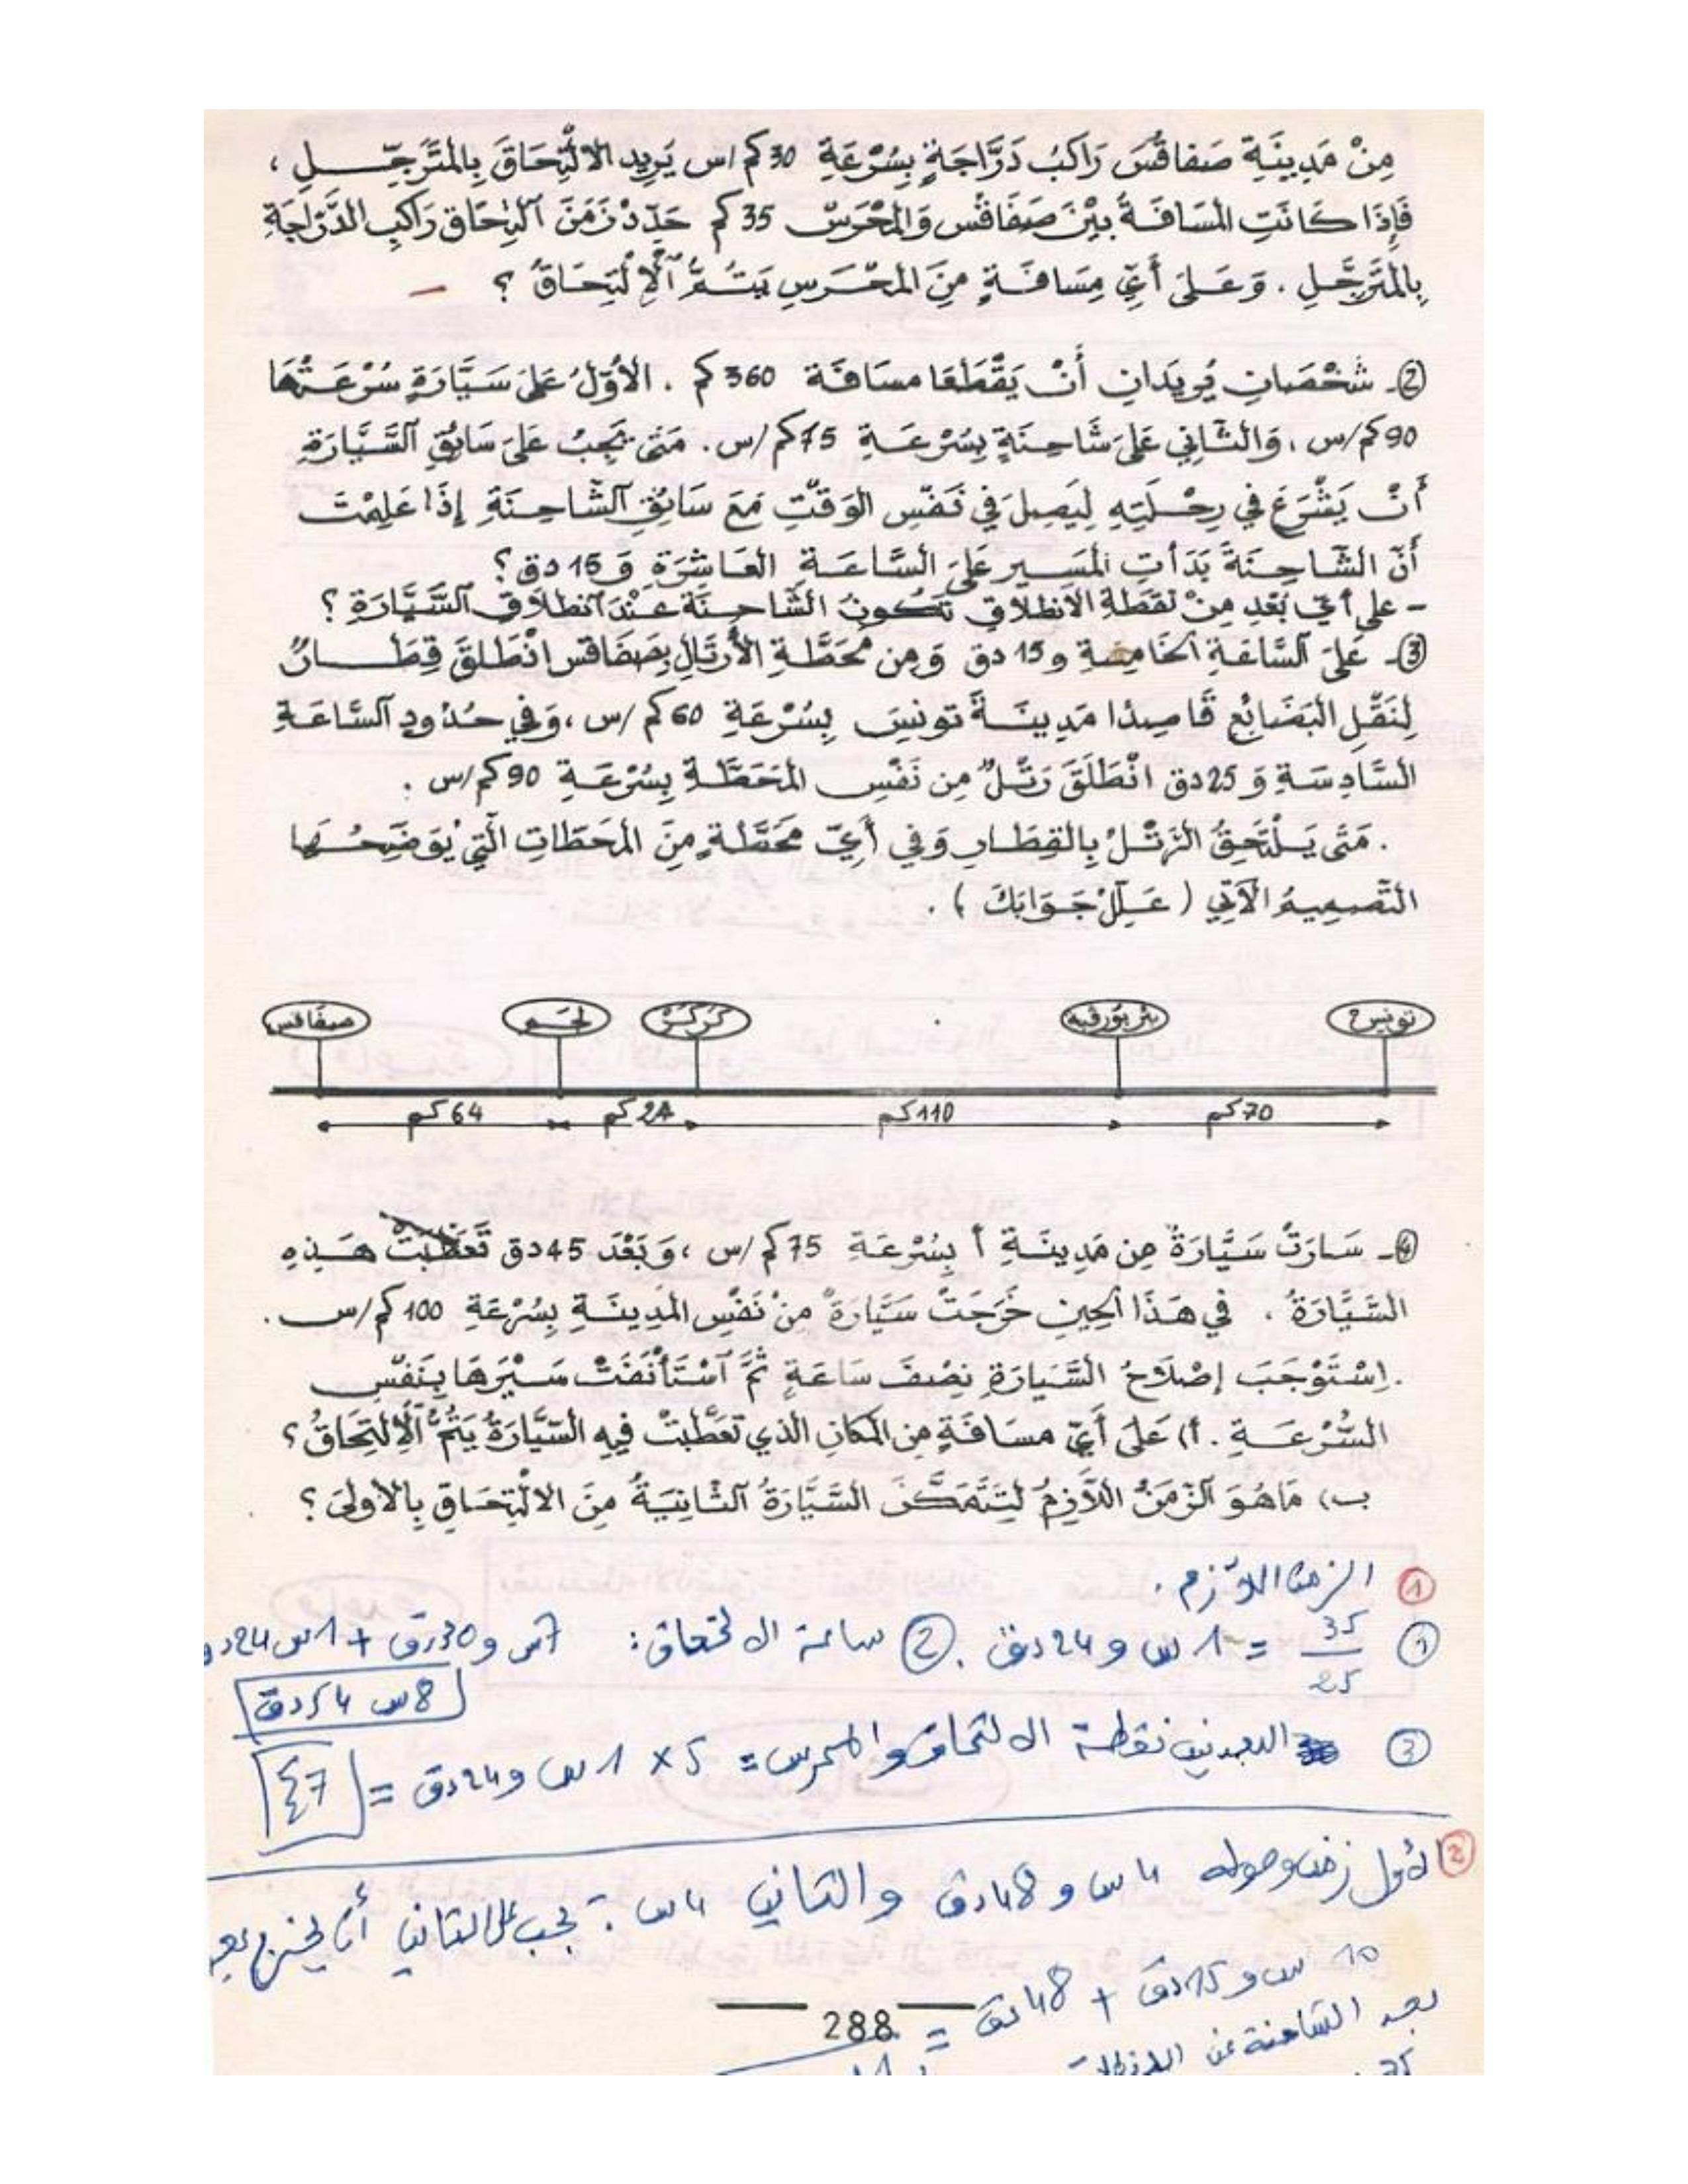 مِنْ مَدِينَةِ صَفاقُسَ رَاكبُ دَرَّاجَةٍ بِسُرْعَةِ 30 كم/س يُرِيد الالْتِحَاقَ بِالمُتَرَجِّـلِ ،
فَإِذَا كَانَتِ المَسَافَةُ بَيْنَ صَفَاقُس وَالمَحْرَسْ 35 كم حَدِّدْ زَمَنَ ٱلْتِحَاق رَاكِبِ الدَّرَّاجَةِ
بِالمُتَرَجِّلِ . وَعَلَى أَيِّ مِسَافَةٍ مِنَ المَحْرَسِ يَتِـمُّ ٱلْاِلْتِحَاقُ ؟
②ـ شَخْصَانِ يُرِيدَانِ أَنْ يَقْطَعَا مسَافَةَ 360 كم . الأَوّلُ عَلَى سَيَّارَةٍ سُرْعَتُهَا
90 كم/س ، وَالثَّانِي عَلَى شَاحِنَةٍ بِسُرْعَةِ 75 كم/س . مَتَى يَجِبُ عَلَى سَائِقِ ٱلسَّيَّارَةِ
أَنْ يَشْرَعَ في رِحْلَتِهِ لِيَصِلَ في نَفْسِ الوَقْتِ مَعَ سَائِقِ ٱلشَّاحِنَةِ إِذَا عَلِمْتَ
أَنَّ الشَّاحِنَةَ بَدَأَتِ المَسِير عَلَى السَّاعَةِ العَاشِرَةِ وَ 15 دق ؟
- على أيّ بُعْدٍ مِنْ نُقْطَةِ الانطلاقِ تَكُونُ الشَّاحِنَةُ عِنْدَ ٱنْطِلَاقِ ٱلسَّيَّارَةِ ؟
③ـ عَلَى ٱلسَّاعَةِ الخَامِسَةِ و 15 دق وَمِن مَحَطَّةِ الأَرْتَالِ بِصَفَاقس انْطَلَقَ قِطَـارٌ
لِنَقْلِ البَضَائِعِ قَاصِدًا مَدِينَةَ تونِسَ بِسُرْعَةِ 60 كم/س ، وَفي حُدُودِ ٱلسَّاعَةِ
السَّادِسَةِ وَ 25 دق انْطَلَقَ رَتْلٌ مِن نَفْسِ المَحَطَّةِ بِسُرْعَةِ 90 كم/س .
. مَتَى يَلْتَحِقُ الرَّتْلُ بِالقِطَارِ وَفي أَيِّ مَحَطَّةٍ مِنَ المَحَطَّاتِ الَّتِي يُوَضِّحُـهَا
التَّصمِيمُ الآتِي ( عَلِّلْ جَوَابَكَ ) .
صفاقس لجم كركر بئر بورقبة تونس
64 كم 24 كم 110 كم 70 كم
④ـ سَارَتْ سَيَّارَةٌ مِن مَدِينَةِ أ بِسُرْعَةِ 75 كم/س ، وَبَعْدَ 45 دق تَعَطَّبَتْ هَـذِهِ
السَّيَّارَةُ . في هَذَا الحِينِ خَرَجَتْ سَيَّارَةٌ مِنْ نَفْسِ المَدِينَةِ بِسُرْعَةِ 100 كم/س .
. اِسْتَوْجَبَ إِصْلَاحُ السَّيَارَةِ نِصْفَ سَاعَةٍ ثُمَّ ٱسْتَأْنَفَتْ سَيْرَهَا بِنَفْسِ
السُّرْعَةِ . أ) عَلَى أَيِّ مسَافَةٍ مِن المَكَانِ الذي تَعَطَّبَتْ فِيهِ السَّيَّارَةُ يَتُمُّ ٱلْاِلْتِحَاقُ ؟
ب) مَا هُوَ ٱلزَّمَنُ اللَّازِمُ لِتَتَمَكَّنَ السَّيَّارَةُ ٱلثَّانِيَةُ مِنَ الالْتِحَاقِ بِالأُولَى ؟
① الزمن اللازم .
① 35/25 = 1 س و 24 دق . ② ساعة الالتحاق : 7 س و 30 دق + 1 س 24 دق
8 س 54 دق
③ البعد بين نقطة الالتحاق والمحرس = 5 × 1 س و 24 دق = 7
② الأول زمن وصوله 4 س و 48 دق والثاني 4 س : يجب على الثاني أن يخرج بعد
10 س و 15 دق + 48 دق =
بعد الشاحنة عن
288